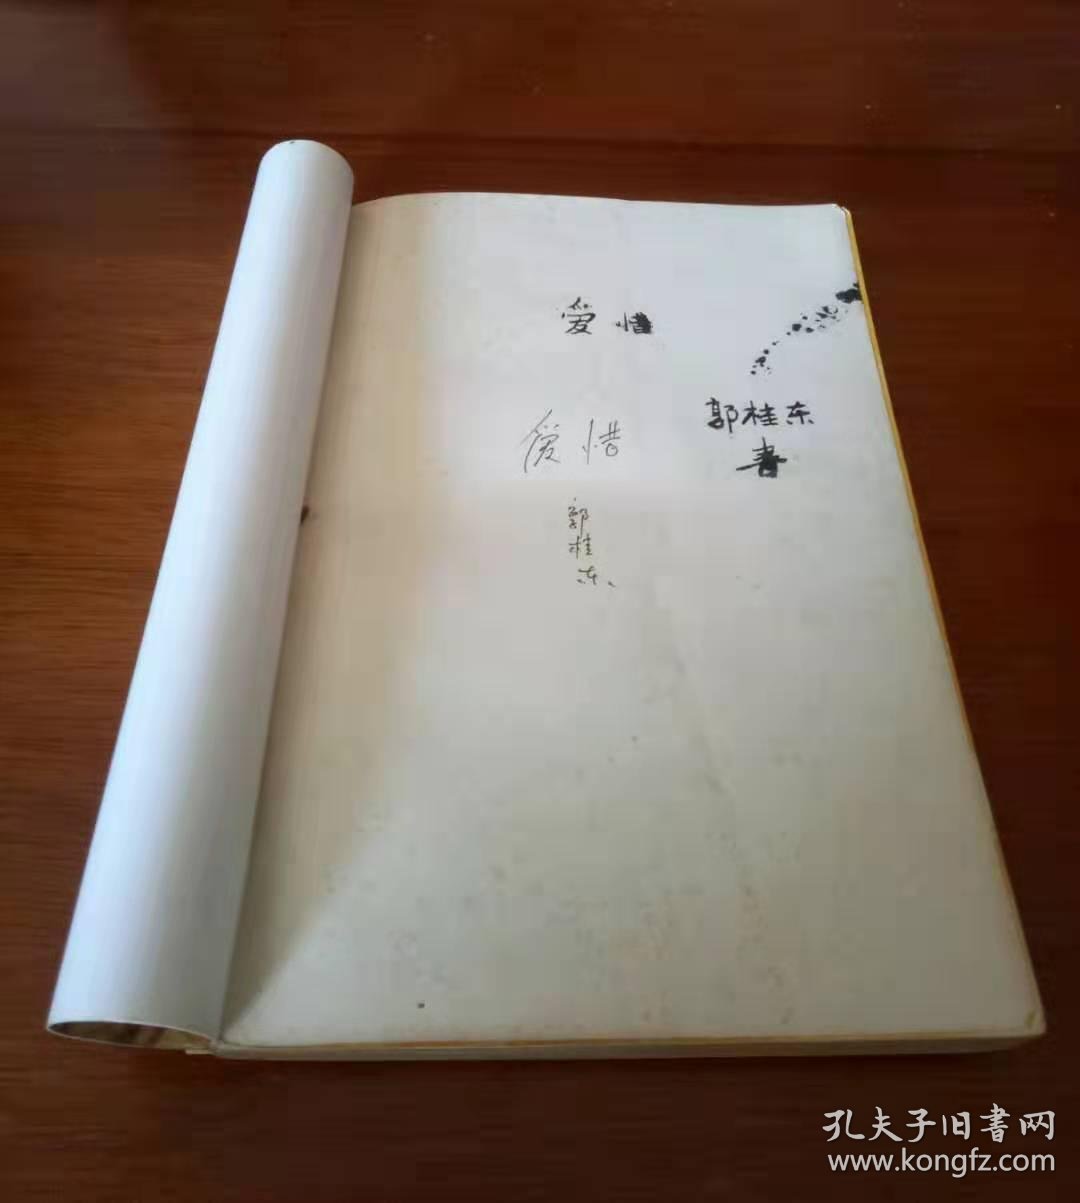 爱惜
郭桂东
书
爱惜
郭桂东
孔夫子旧書网
www.kongfz.com